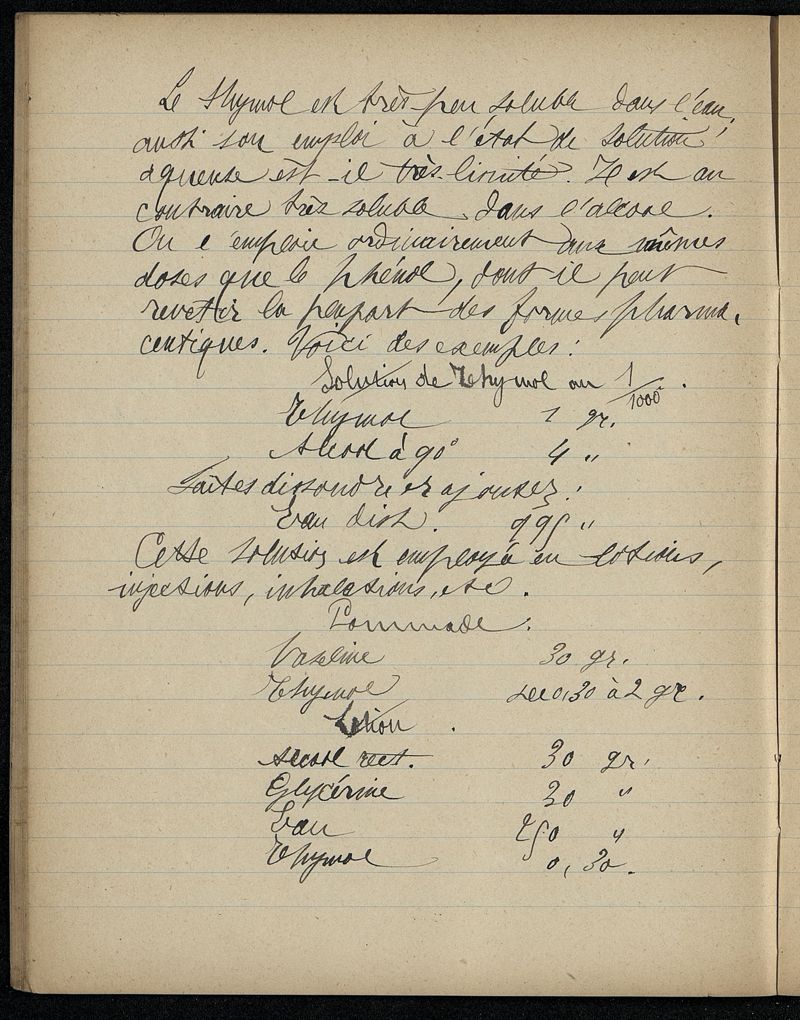 Le thymol est très peu soluble dans l'eau,
aussi son emploi à l'état de solution
aqueuse est-il très limité. Il est au
contraire très soluble dans l'alcool.
On l'emploie ordinairement aux mêmes
doses que le phénol, dont il peut
revetir la pepart des formes pharma-
ceutiques. Voici des exemples :
Solution de Thymol au 1/1000.
Thymol 1 gr.
Alcool à 90° 4 "
Faites dissoudre et ajoutez :
Eau dist. 995 "
Cette solution est employé en lotions,
injections, inhalations, etc.
Pommade.
Vaseline 30 gr.
Thymol de 0,30 à 2 gr.
Lotion.
Alcool rect. 30 gr.
Glycérine 20 "
Eau 250 "
Thymol 0,30.